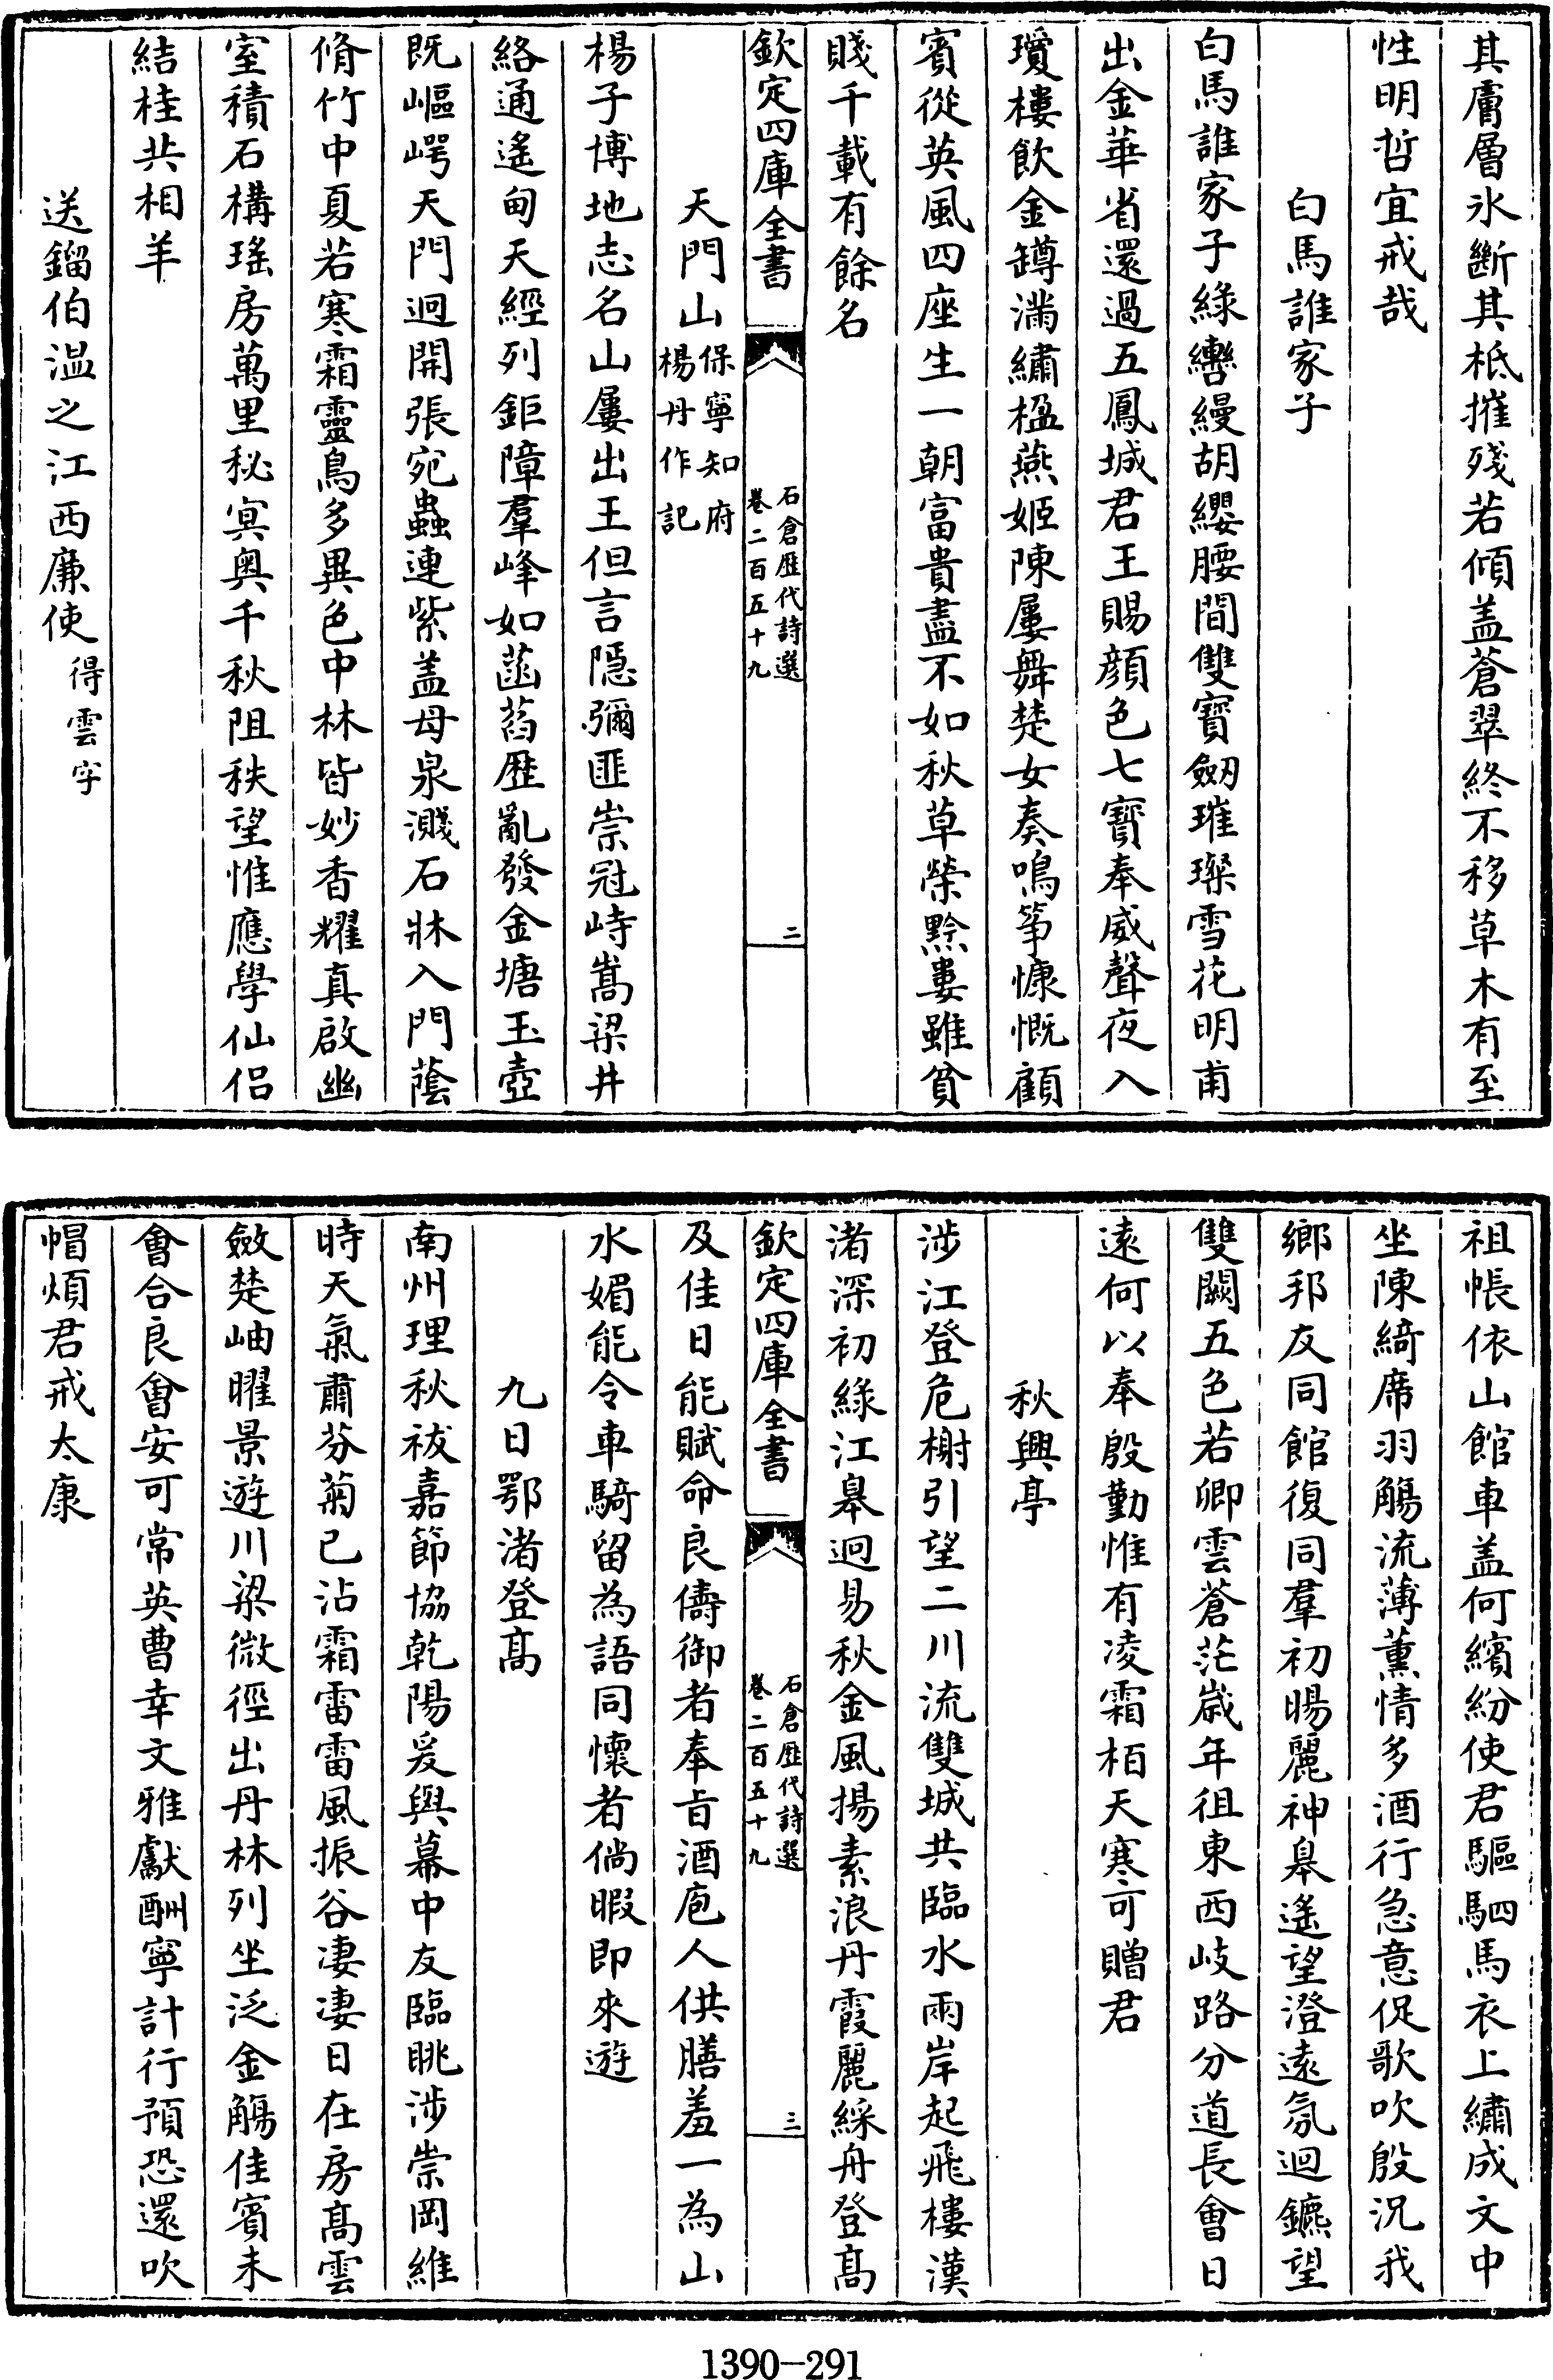 其膚層氷斷其柢摧殘若傾盖蒼翠終不移草木有至
性明哲宜戒哉
白馬誰家子
白馬誰家子綠轡縵胡纓腰間雙寶劒璀璨雪花明甫
出金華省還過五鳳城君王賜顔色七寳奉威聲夜入
瓊樓飲金罇滿繡楹燕姬陳屢舞楚女奏鳴筝慷慨顧
賓從英風四座生一朝富貴盡不如秋草榮黔婁雖貧
賤千載有餘名
欽定四庫全書
石倉歷代詩選
卷二百五十九
二
天門山
保寧知府
楊丹作記
楊子博地志名山屢出王但言隱彌匪崇冠峙嵩梁井
絡通遙甸天經列鉅障羣峰如菡萏歷亂發金塘玉壺
既嶇崿天門迥開張宛蟲連紫盖母泉濺石牀入門蔭
脩竹中夏若寒霜靈鳥多異色中林皆妙香耀真啟幽
室積石構瑤房萬里秘㝠奥千秋阻秩望惟應學仙侣
結桂共相羊
送鎦伯温之江西廉使
得雲字
祖帳依山館車盖何繽紛使君驅駟馬衣上繡成文中
坐陳綺席羽觴流薄薰情多酒行急意促歌吹殷况我
鄉邦友同館復同羣初暘麗神臯遙望澄遠氛迴鑣望
雙闕五色若卿雲蒼茫歲年徂東西岐路分道長會日
遠何以奉殷勤惟有凌霜栢天寒可贈君
秋興亭
涉江登危榭引望二川流雙城共臨水兩岸起飛樓漢
渚深初綠江臯迥易秋金風揚素浪丹霞麗綵舟登高
欽定四庫全書
石倉歷代詩選
卷二百五十九
三
及佳日能賦命良儔御者奉旨酒庖人供膳羞一為山
水媚能令車騎留為語同懷者倘暇即來遊
九日鄂渚登高
南州理秋祓嘉節協乾陽爰與幕中友臨眺涉崇岡維
時天氣肅芬菊已沾霜雷雷風振谷凄凄日在房高雲
斂楚岫曜景遊川梁微徑出丹林列坐泛金觴佳賓未
會合良會安可常英曹幸文雅獻酬寧計行預恐還吹
帽煩君戒太康
1390-291